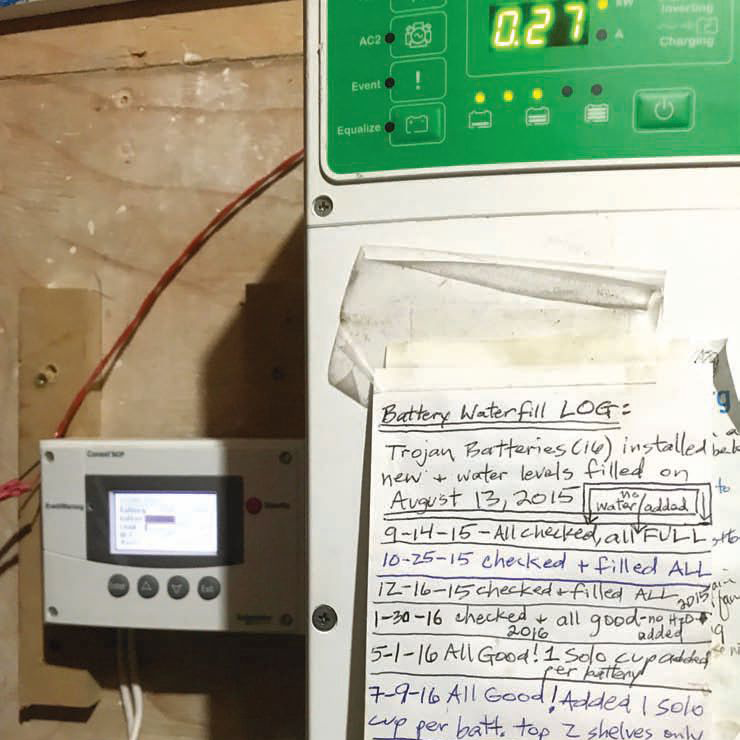 AC2
0.27
kW
A
Inverting
Charging
Event
Equalize
Conext SCP
Event/Warning
Standby
Enter
Exit
Schneider
Battery Waterfill LOG:
Trojan Batteries (16) installed
new + water levels filled on
August 13, 2015
no
water/added
9-14-15-All checked, all FULL
10-25-15 checked + filled ALL
12-16-15-checked + filled ALL 2015
1-30-16 checked + all good-no H2O
2016 added
5-1-16 All Good! 1 Solo cup added
per battery
7-9-16 All Good! Added 1 Solo
cup per batt. top 2 shelves only
to
g